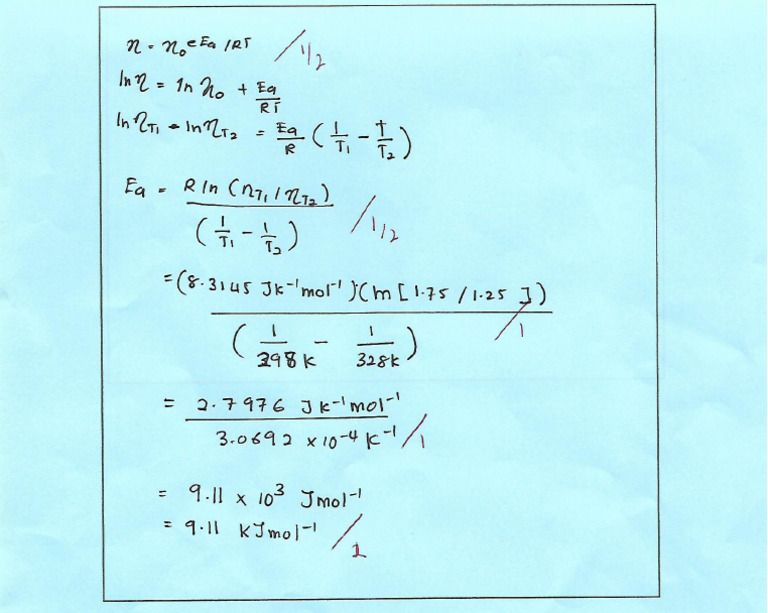 η = η₀ e Ea /RT /1/2
ln η = ln η₀ + Ea/RT
ln ηT1 - ln ηT2 = Ea/R (1/T1 - 1/T2)
Ea = R ln (ηT1 / ηT2) / (1/T1 - 1/T2) /1/2
= (8.3145 JK⁻¹mol⁻¹)(ln [1.75 / 1.25]) / (1/298K - 1/328K) /1
= 2.7976 JK⁻¹mol⁻¹ / 3.0692 x 10⁻⁴ K⁻¹ /1
= 9.11 x 10³ Jmol⁻¹
= 9.11 KJmol⁻¹ /1